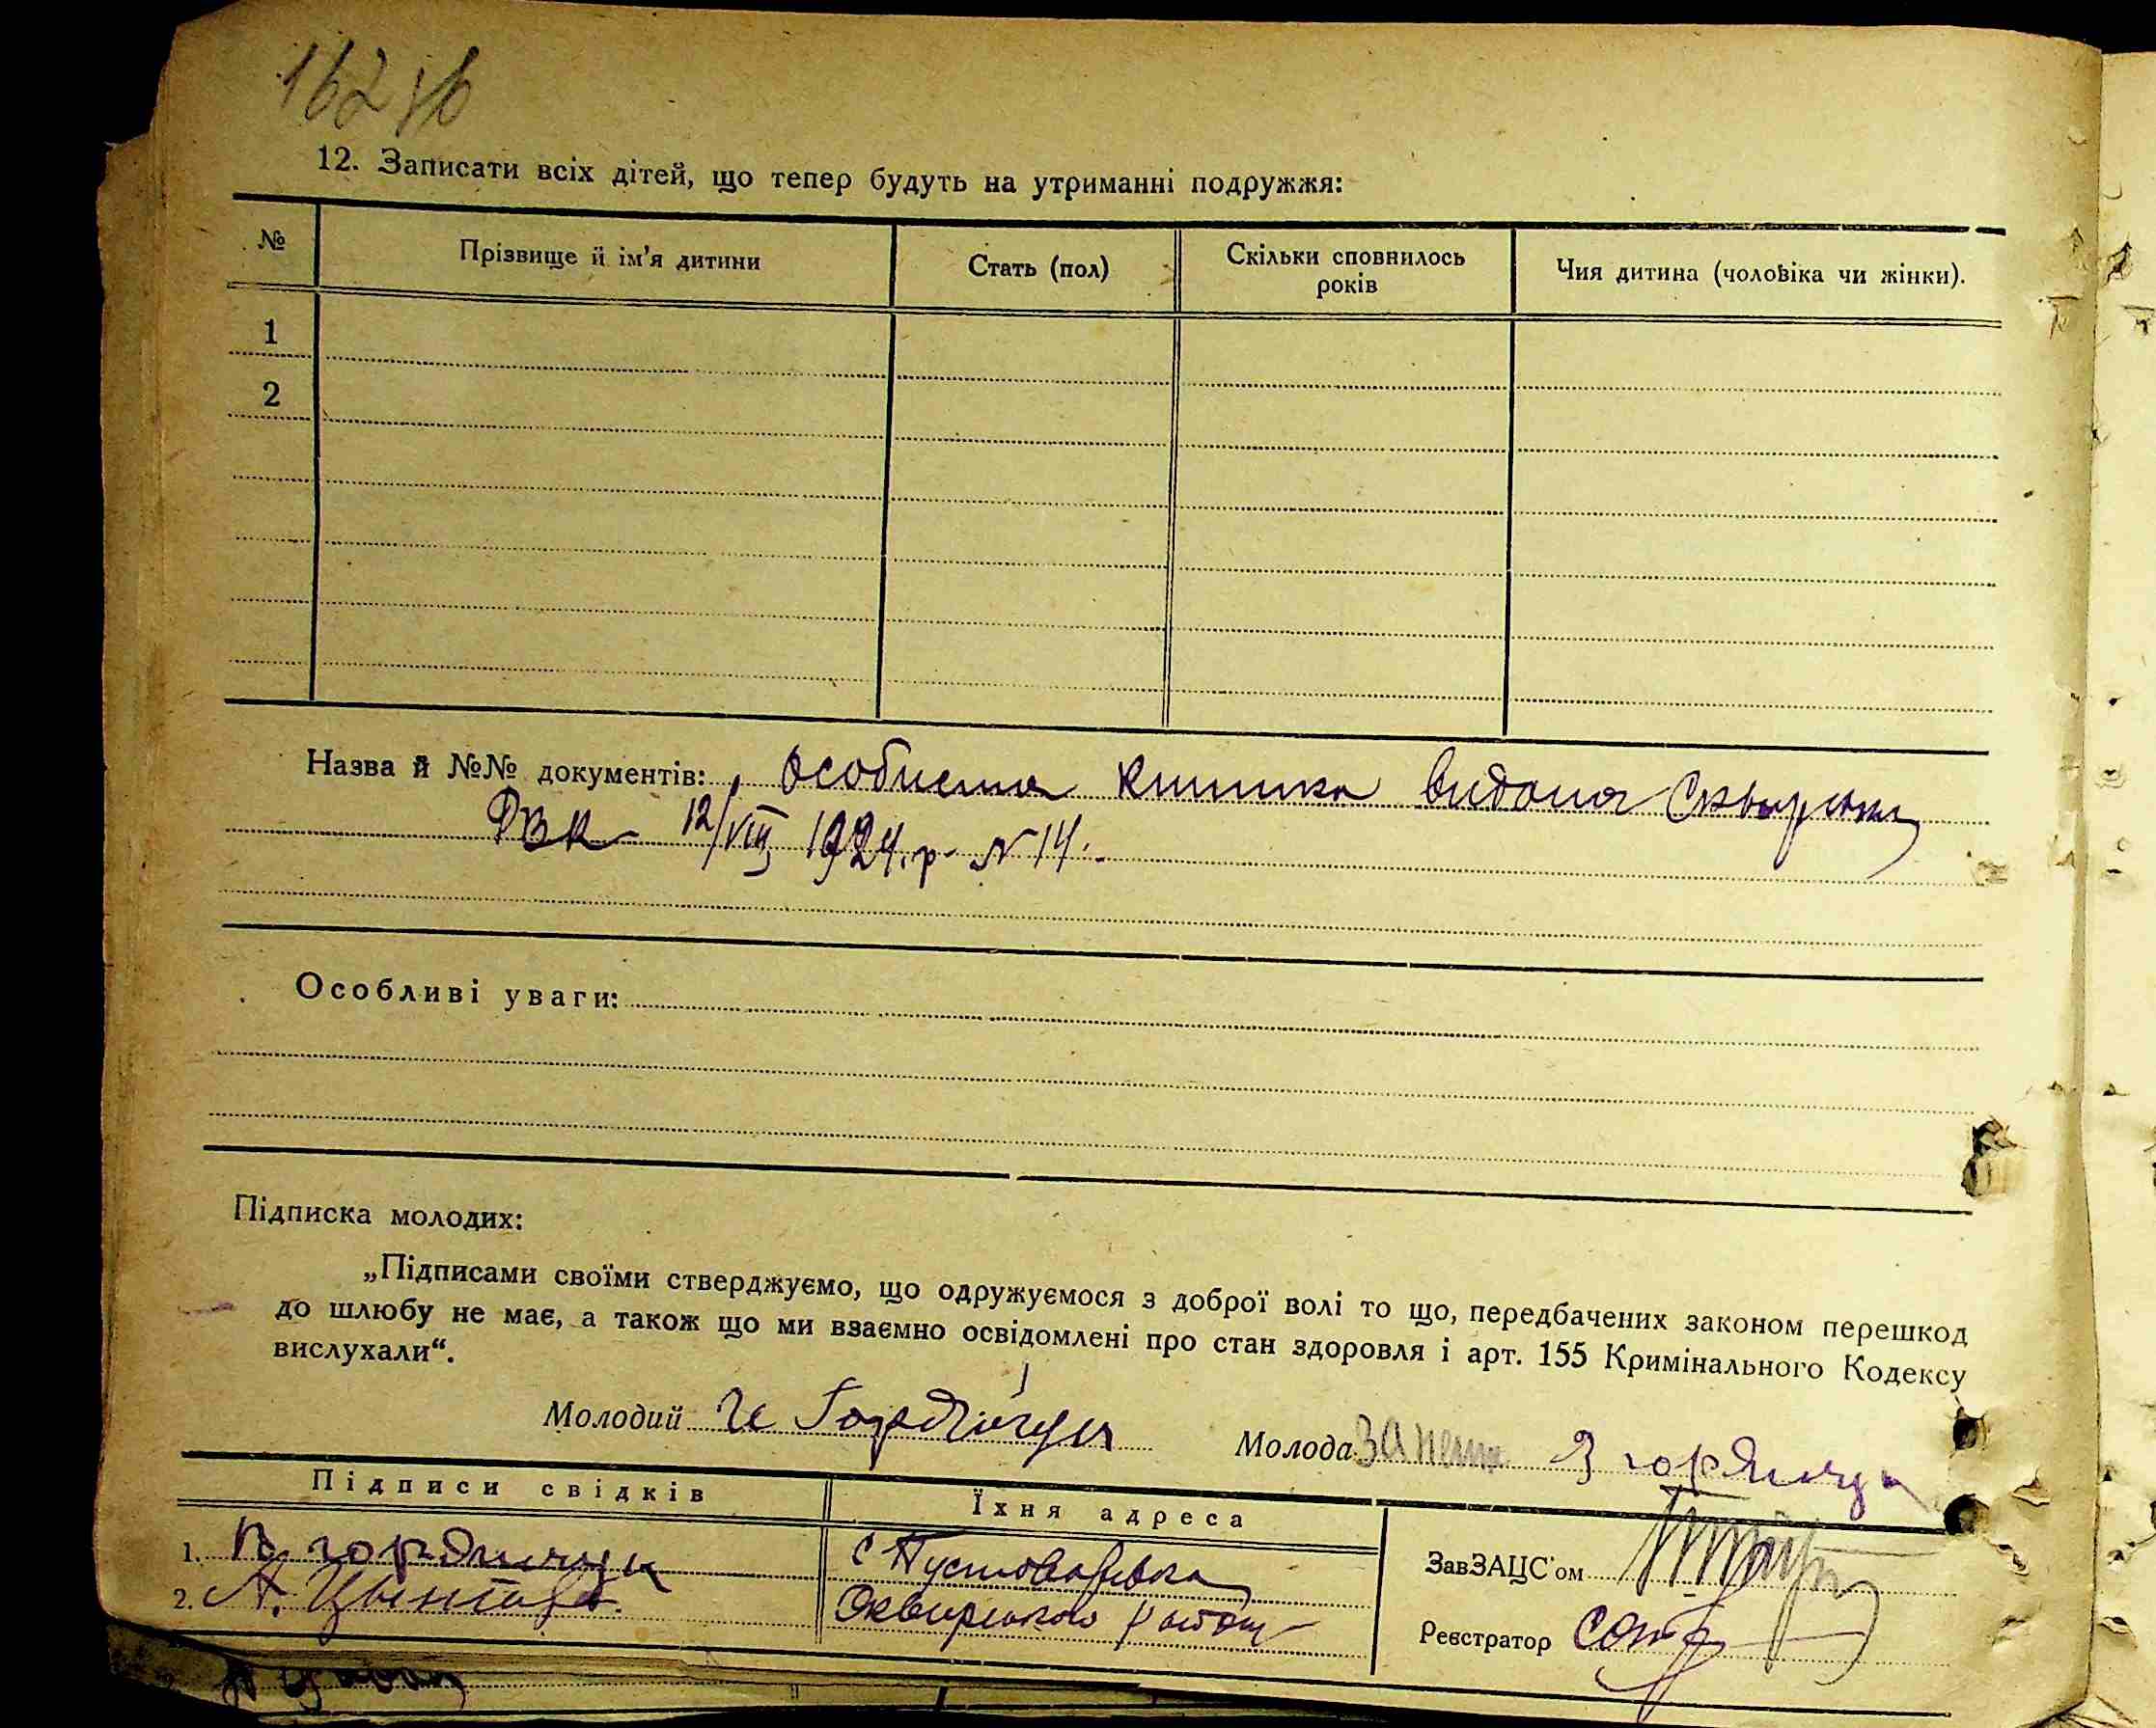 12. Записати всіх дітей, що тепер будуть на утриманні подружжя:
№ Прізвище й ім'я дитини Стать (пол) Скільки сповнилось років Чия дитина (чоловіка чи жінки).
1
2
Назва й №№ документів: Особиста книжка видана Сквирськ
РВК 12/VIII 1924.р. N 14.
Особливі уваги:
Підписка молодих:
„Підписами своїми стверджуємо, що одружуємося з доброї волі то що, передбачених законом перешкод
до шлюбу не має, а також що ми взаємно освідомлені про стан здоровля і арт. 155 Кримінального Кодексу
вислухали“.
Молодий Молода
Підписи свідків Їхня адреса
1. с Пустоварівка
2. А. Сквирського району
ЗавЗАЦС'ом
Реєстратор